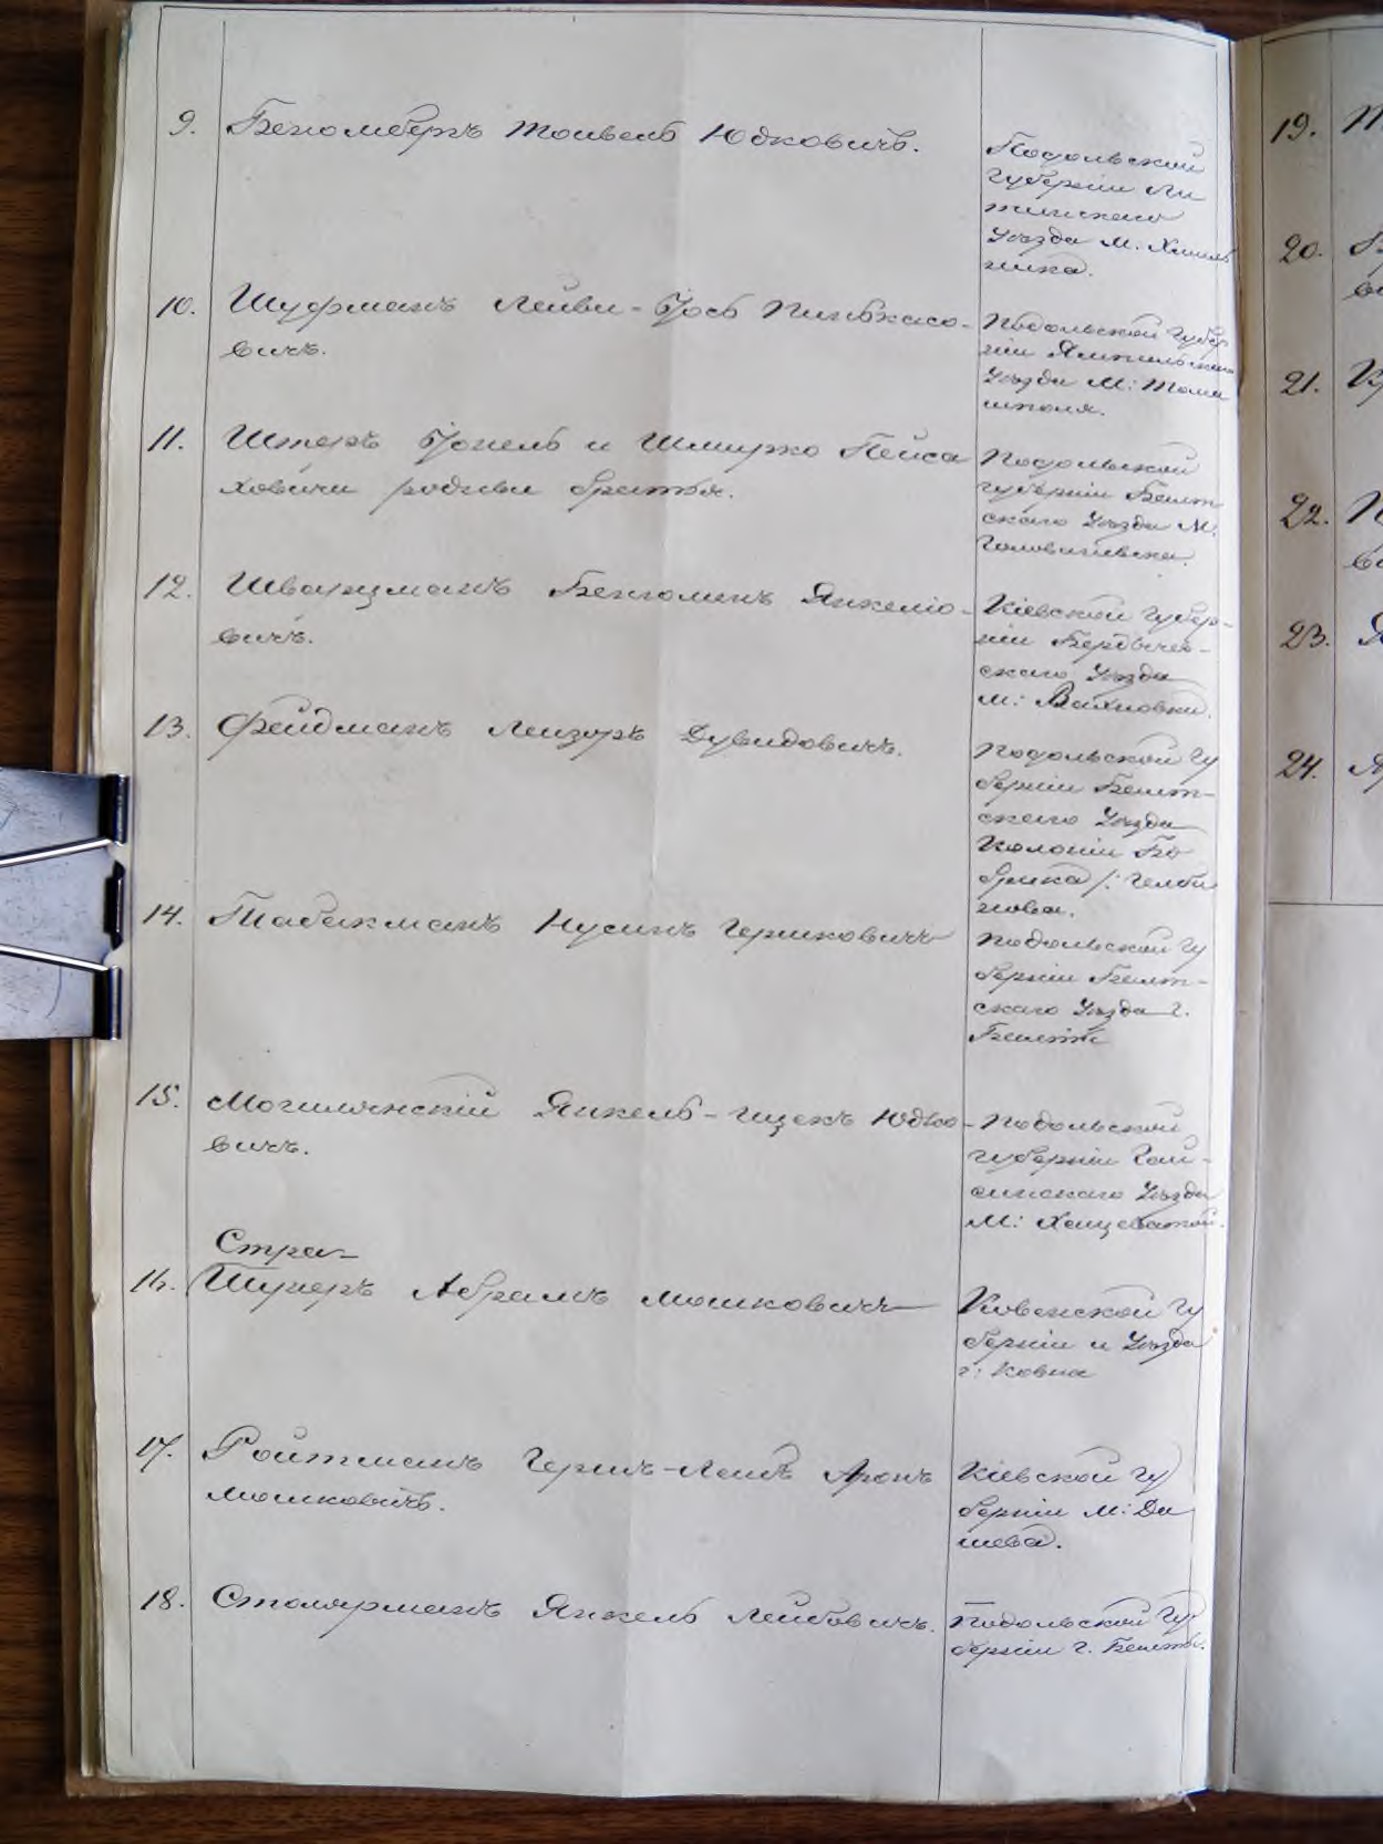 9. Бекомберъ Товель Юдковичъ.
Подольской
Губерніи Ли
тинскаго
Уѣзда М: Хмѣль
ника.
10. Шуфманъ Лейви-Іось Пинькасо-
вичъ.
Подольской Губер
ніи Ямпольскаго
Уѣзда М: Тома
шполя.
11. Штеръ Іосель и Шмирко Пейса
ховичи родные братья.
Подольской
губерніи Балт
скаго Уѣзда М.
Голованевска.
12. Шварцманъ Беніоминъ Янкеліо-
вичъ.
Кіевской Губер-
ніи Бердичев-
скаго Уѣзда
М: Вахновки.
13. Фейдманъ Лейзоръ Дувидовичъ.
Подольской Гу
берніи Балт-
скаго Уѣзда
Колоніи Бо
брика /:
нова.
14. Табакманъ Нусинъ Гершковичъ
Подольской Гу
берніи Балт-
скаго Уѣзда г.
Балты
15. Могилянскій Янкель-Ицекъ Юдко-
вичъ.
Подольской
губерніи Гай-
синскаго Уѣзда
М: Хащеватой.
Стра-
16. Шунеръ Абрамъ Мошковичъ
Ковенской Гу
берніи и Уѣзда
г: Ковна
17. Ройтманъ Гершъ-Лейбъ Аронъ
Мошковичъ.
Кіевской Гу
берніи М: Да
шева.
18. Столярманъ Янкель Лейбовичъ.
Подольской Гу
берніи г. Балты.
19.
20.
21.
22.
23.
24.